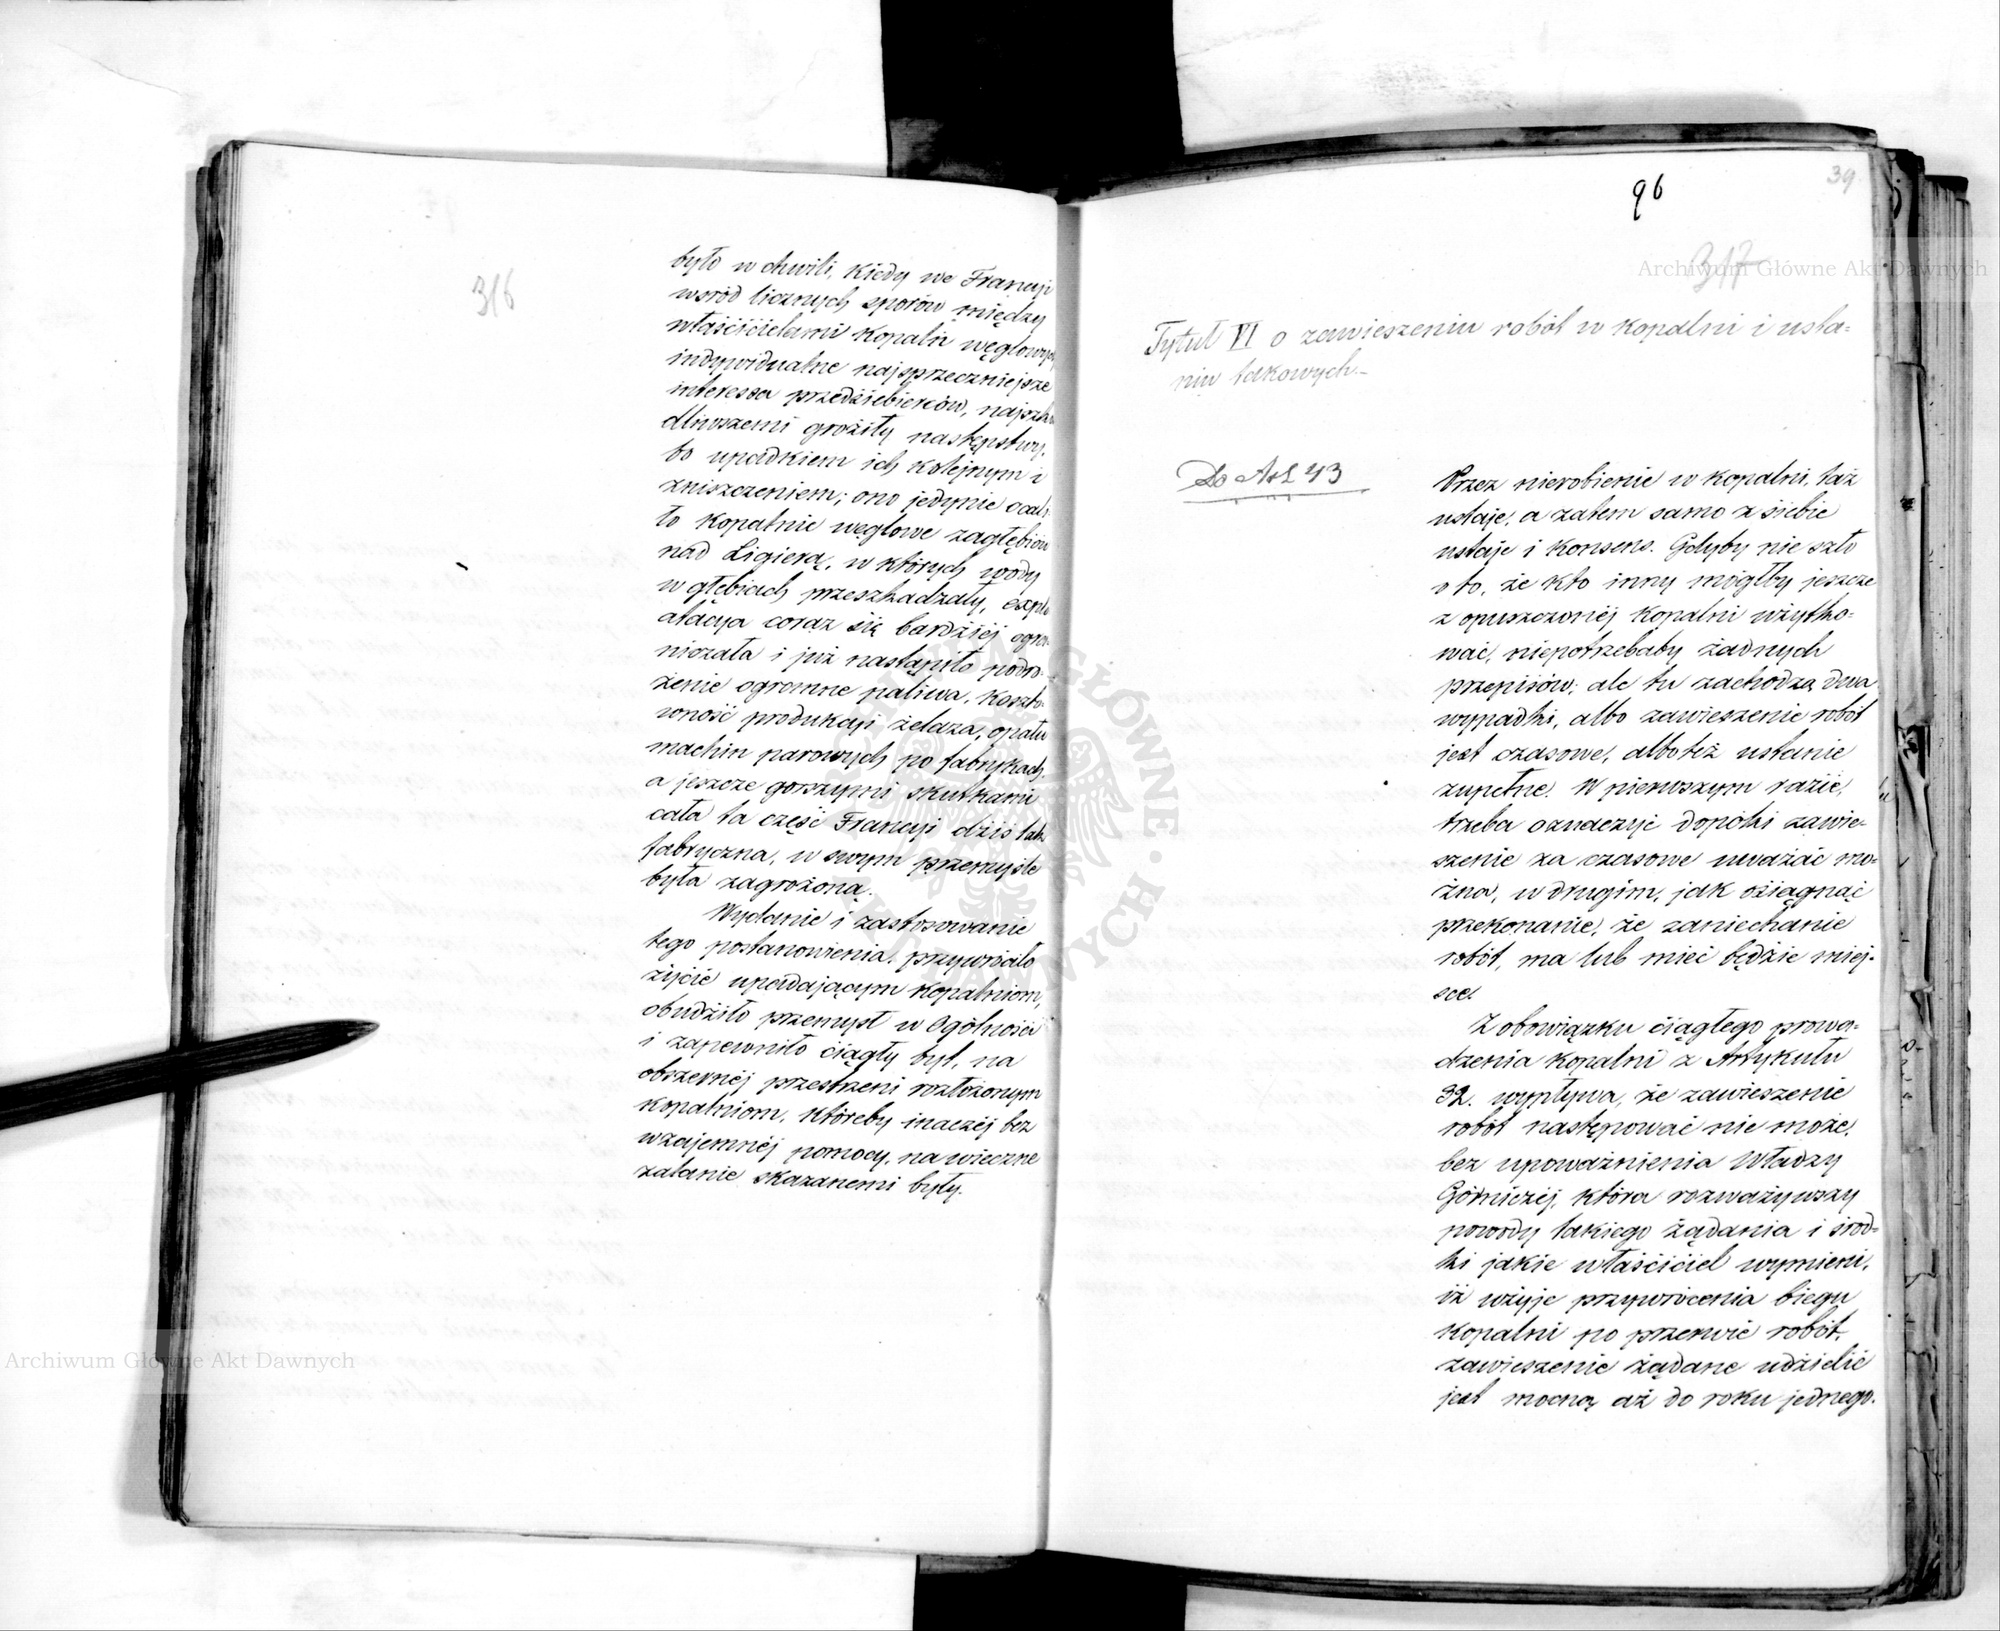 316
było w chwili, kiedy we Francyi
wsród licznych sporów między
właścicielami kopalń węglowych
indywidualne najsprzeczniejsze
interessa przedsiebierców, najszko
dliwszemi groziły następstwy,
bo upadkiem ich kolejnym i
zniszczeniem; ono jedynie ocali
ło kopalnie węglowe zagłębiów
nad Ligierą, w których wody
w głębiach przeszkadzały, explo
atacya coraz się bardziéj ogra
niczała i już nastąpiło podro-
żenie ogromne paliwa, koszto-
wność produkcyi żelaza, opału
machin parowych po fabrykach,
a jeszcze gorszymi skutkami
cała ta część Francyi dziś tak
fabryczna, w swym przemyśle
była zagrożoną.
Wydanie i zastosowanie
tego postanowienia, przywróciło
życie upadającym kopalniom,
obudziło przemysł w Ogólności
i zapewniło ciągły byt, na
obszernéj przestrzeni rozłożonym
kopalniom, któreby inaczéj bez
wzajemnéj pomocy, na wieczne
zalanie skazanemi były.
96
39
317
Tytuł VI o zawieszeniu robót w kopalni i usta=
niu takowych.
Do Art 43
Przez nierobienie w kopalni, taż
ustaje, a zatem samo z siebie
ustaje i konsens. Gdyby nie szło
o to, że kto inny mógłby jeszcze
z opuszczonéj kopalni użytko=
wać, niepotrzebaby żadnych
przepisów; ale tu zachodzą dwa
wypadki, albo zawieszenie robót
jest czasowe, albo też ustanie
zupełne. W pierwszym razie,
trzeba oznaczyć dopóki zawie-
szenie za czasowe uważać mo=
żna, w drugim, jak osiągnąć
przekonanie, że zaniechanie
robót, ma lub mieć będzie miej-
sce.
Z obowiązku ciągłego prowa=
dzenia kopalni z Artykułu
32. wypływa, że zawieszenie
robót następować nie może,
bez upoważnienia Władzy
Górniczéj, która rozważywszy
powody takiego żądania i środ=
ki jakie właściciel wymieni,
iż użyje przywrócenia biegu
kopalni po przerwie robót,
zawieszenie żądane udzielić
jest mocną aż do roku jednego.
Archiwum Główne Akt Dawnych
Archiwum Główne Akt Dawnych